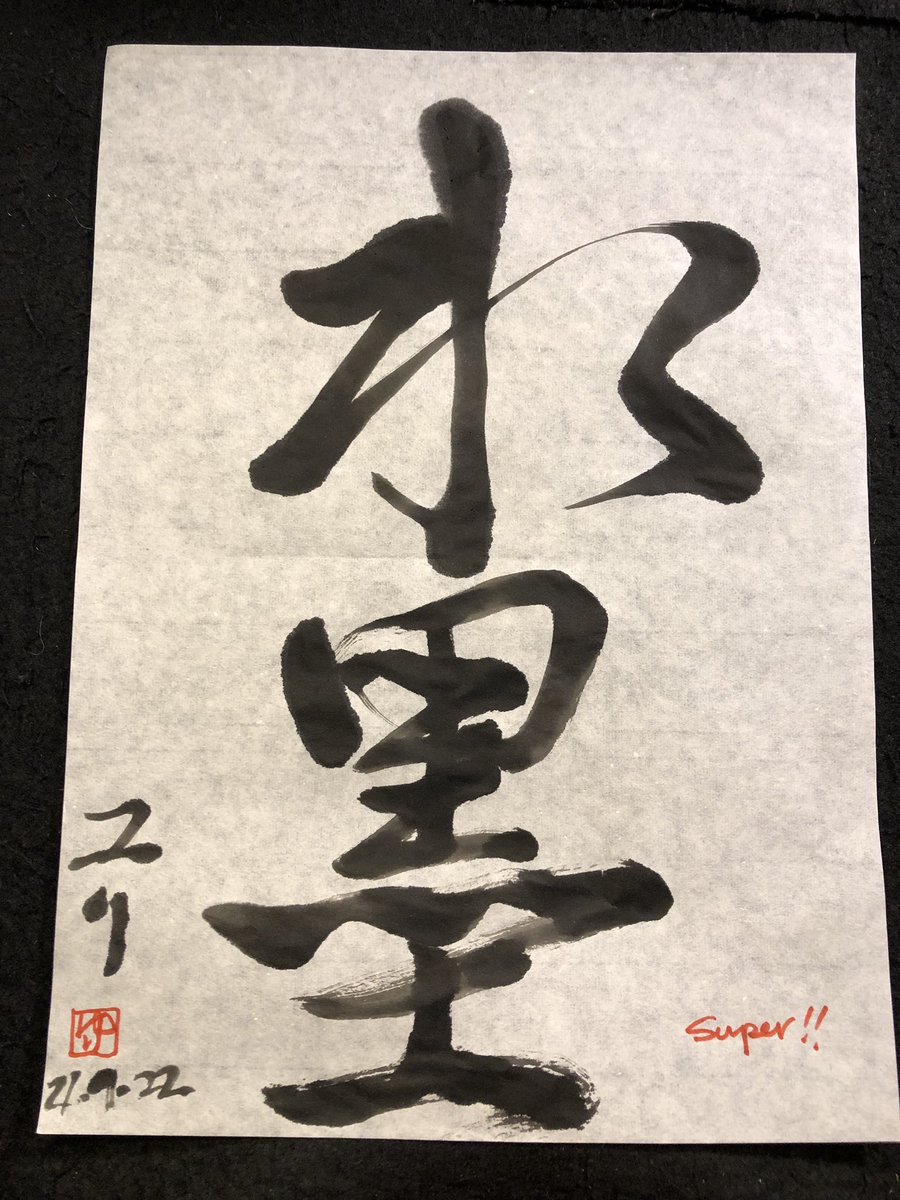 水
墨
ユリ
21.9.22
Super!!